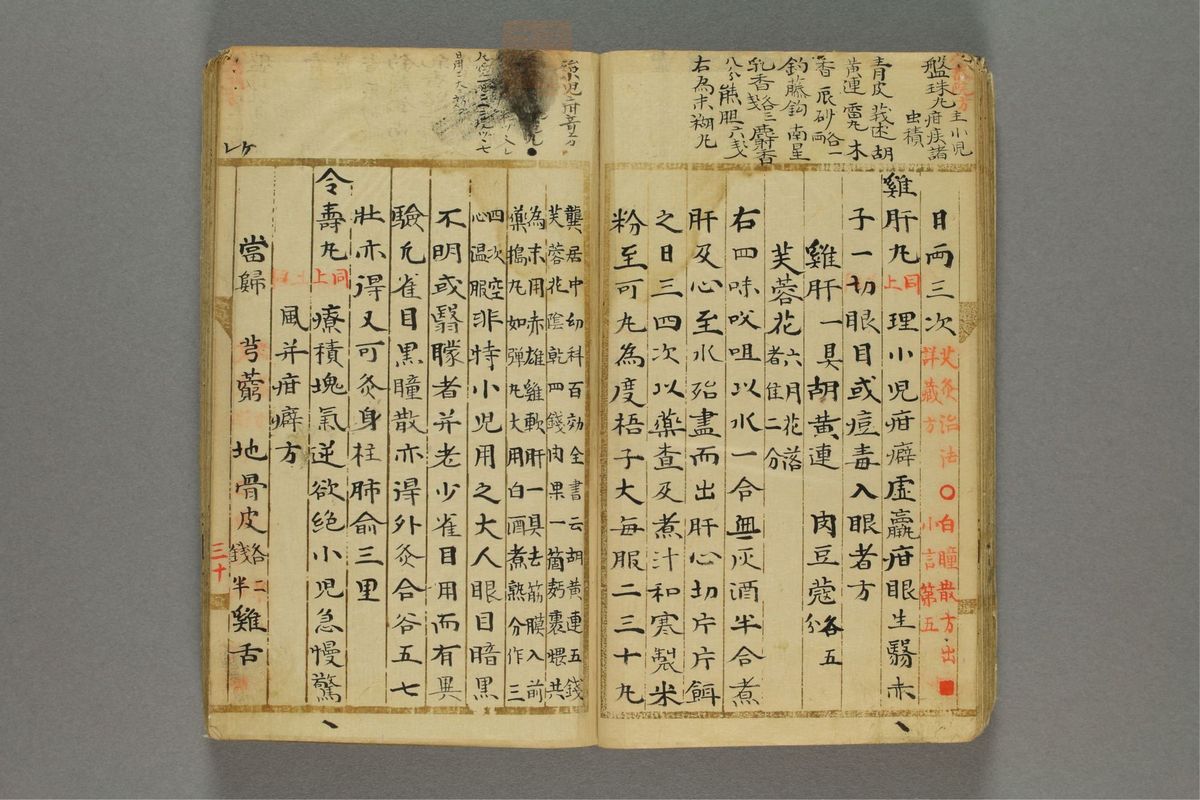 盤珠丸主小児
疳疾諸
虫積
青皮 莪朮 胡
黄連 雷丸 木
香 辰砂各一両
釣藤鈎 南星
乳香各三 麝香
八分 熊胆六戔
右為末糊丸
日両三次 艾灸治法詳蔵方 〇白瞳散方出小言第五
雞肝丸 同上 理小児疳癖虚羸疳眼生翳赤
子一切眼目或痘毒入眼者方
雞肝一具 胡黄連 肉豆蔻各五分
芙蓉花六月花落者佳二分
右四味㕮咀以水一合無灰酒半合煮
肝及心至水殆盡而出肝心切片片餌
之日三四次以藥查及煮汁和寒製米
粉至可丸為度梧子大毎服二三十丸
龔居中幼科百効全書云胡黄連五錢
芙蓉花陰乾四錢肉果一箇麪裹煨共
為末用赤雄雞軟肝一具去筋膜入前
藥搗丸如彈丸大用白酒煮熟分作三
四次空
心温服 非特小児用之大人眼目暗黒
不明或翳矇者并老少雀目用而有異
驗允雀目黒瞳散亦得外灸合谷五七
壯亦得又可灸身柱肺俞三里
令壽丸 同上 療積塊氣逆欲絶小児急慢驚
風并疳癖方
當歸 芎藭 地骨皮各二錢半 雞舌
三十